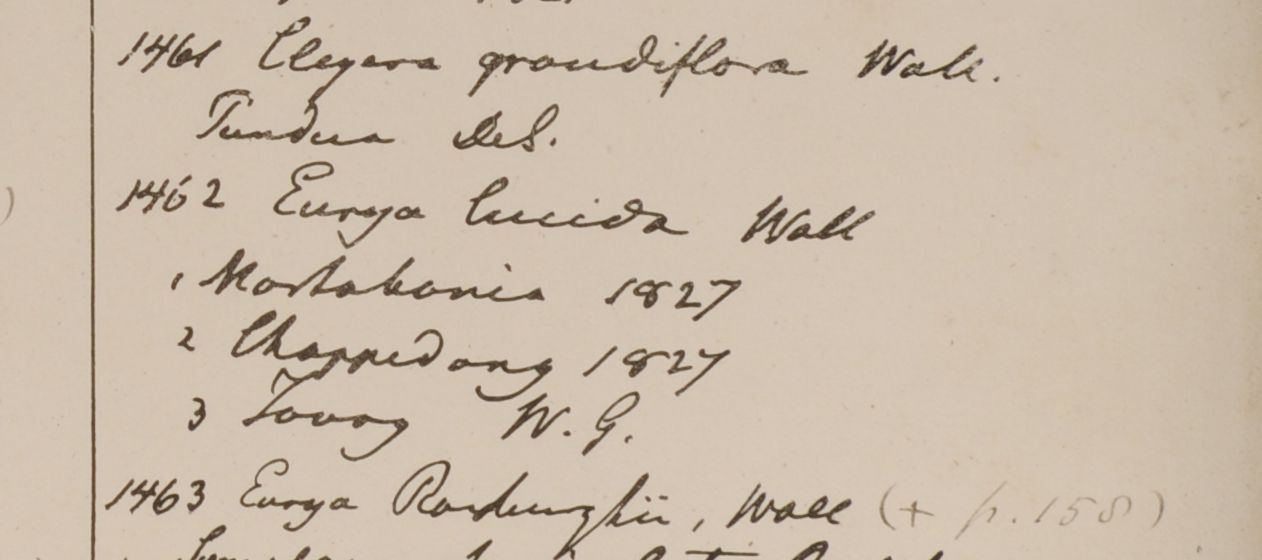 1461 Cleyera grandiflora Wall.
Tundua DeS.
1462 Eurya lucida Wall
1 Mostabania 1827
2 Chappedong 1827
3 Tavoy W. G.
1463 Eurya Roxburghii, Wall (+ p. 158)